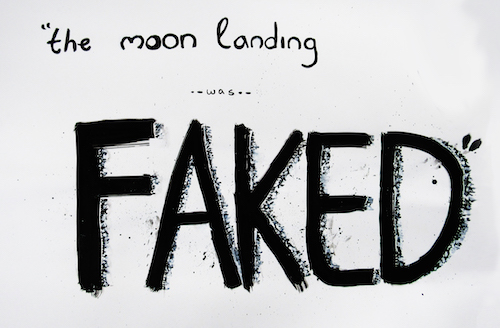 "the moon landing
--was--
FAKED"